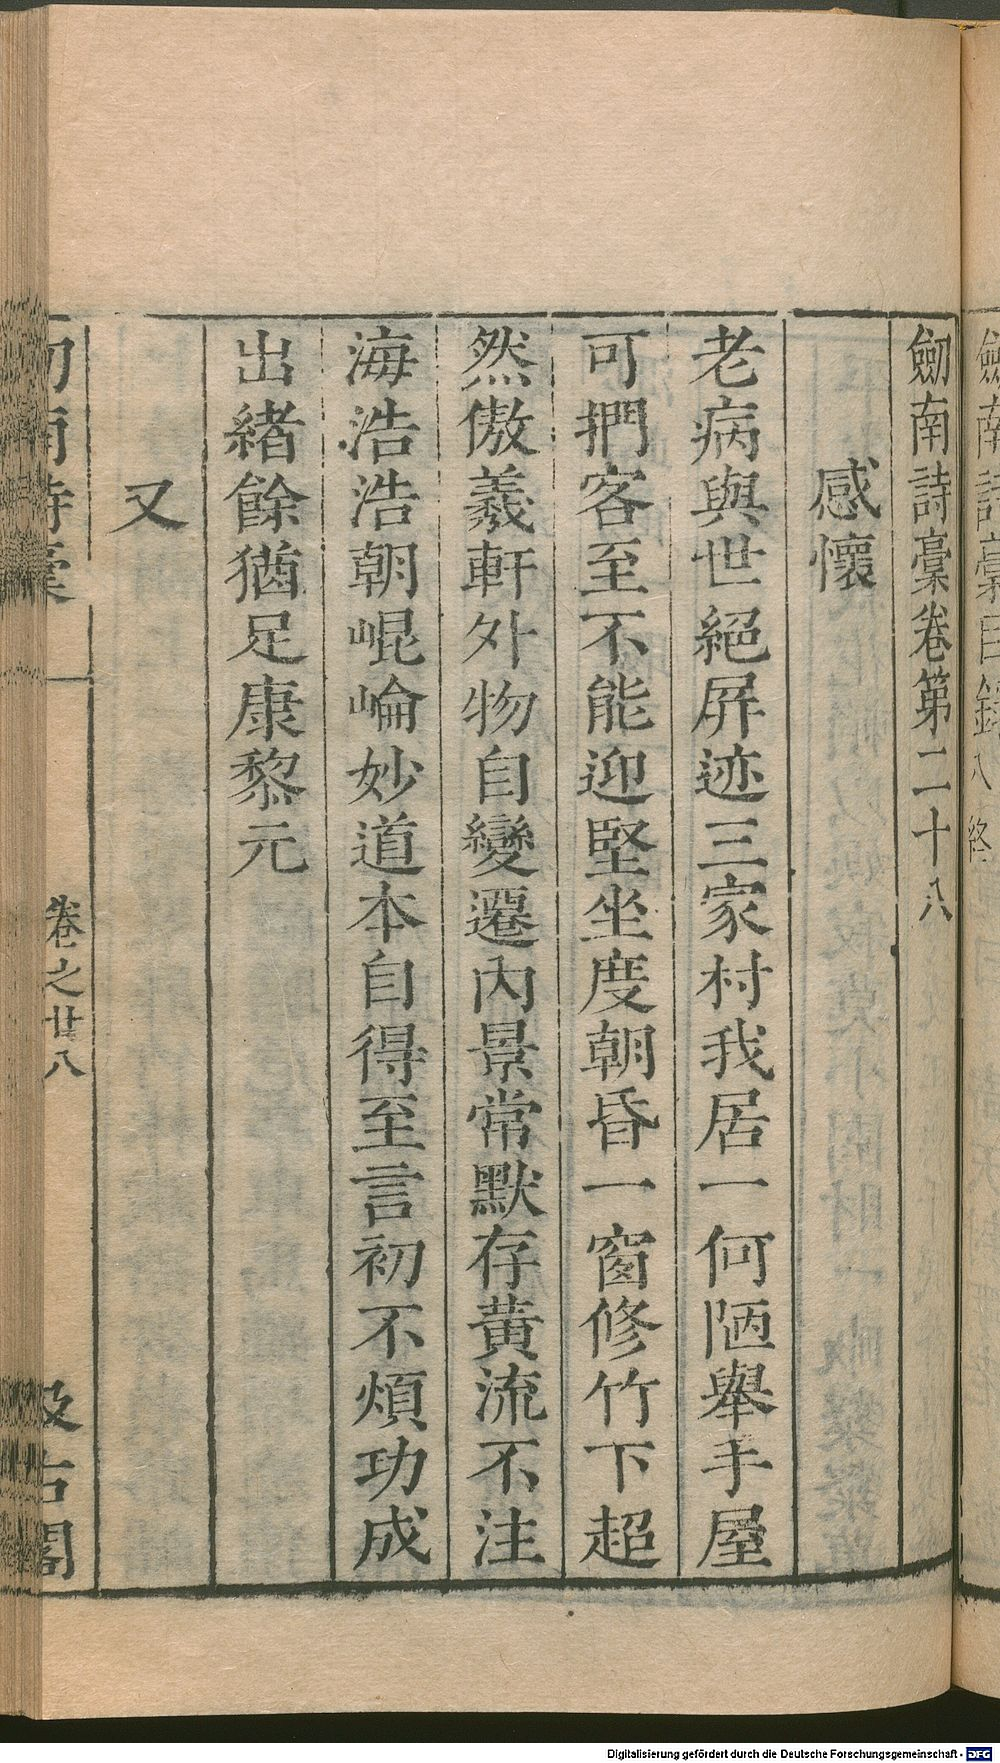 劒南詩稾目錄八 終
劒南詩稾卷第二十八
感懷
老病與世絕屏迹三家村我居一何陋舉手屋
可捫客至不能迎堅坐度朝昏一窗修竹下超
然傲羲軒外物自變遷內景常默存黃流不注
海浩浩朝崐崘妙道本自得至言初不煩功成
出緒餘猶足康黎元
又
卷之廿八
Digitalisierung gefördert durch die Deutsche Forschungsgemeinschaft - DFG